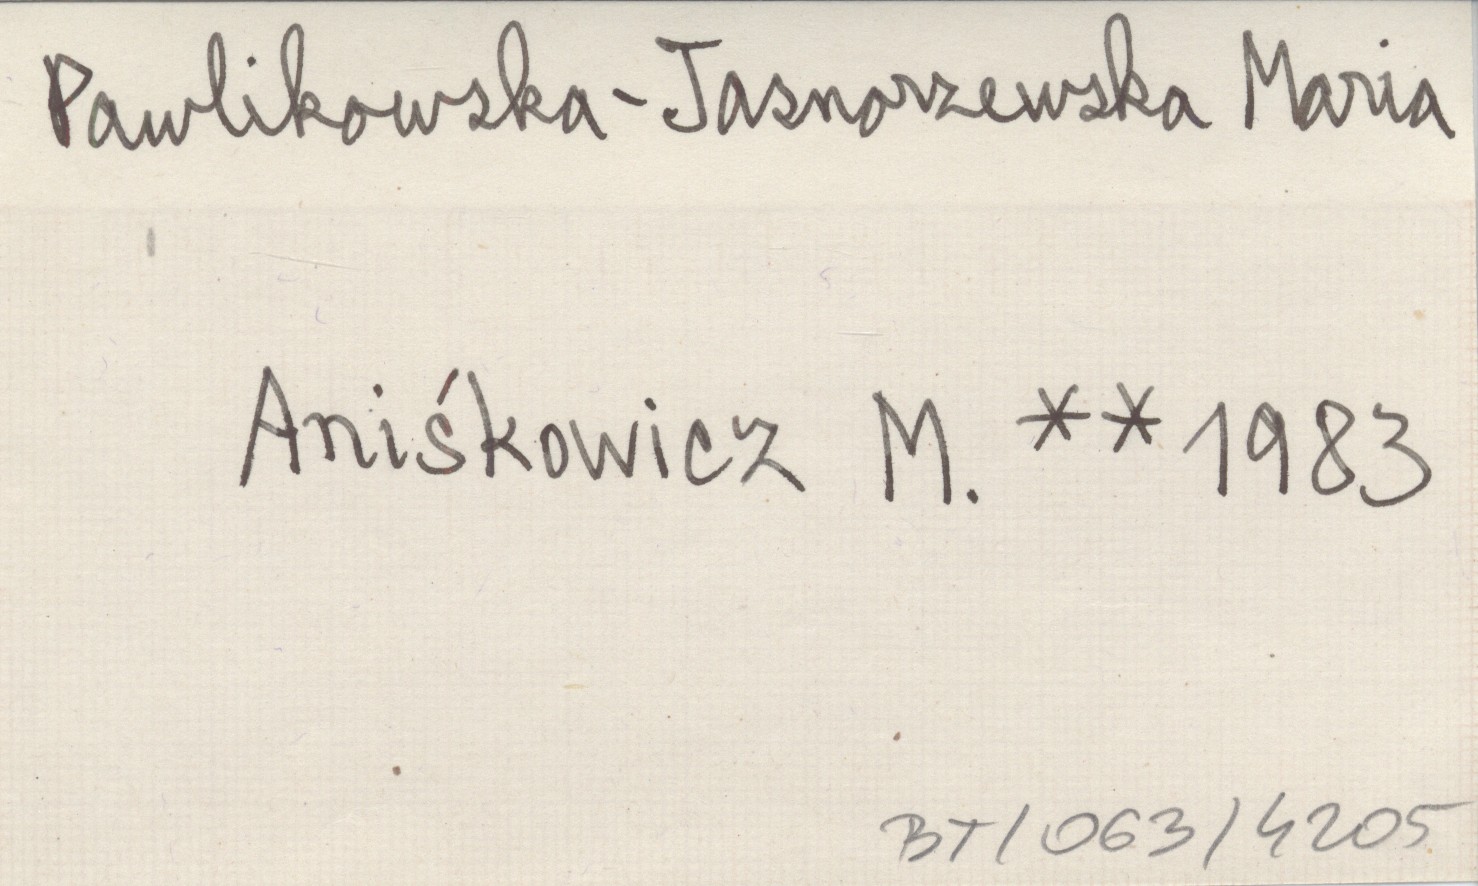 Pawlikowska-Jasnorzewska Maria
Aniśkowicz M. ** 1983
BT/063/4205